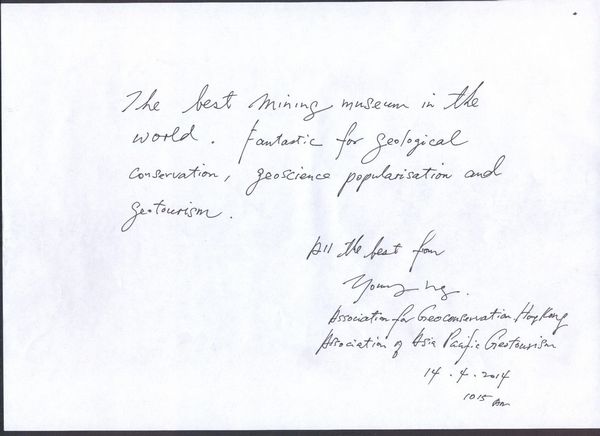 The best mining museum in the
world. Fantastic for geological
conservation, geoscience popularisation and
geotourism.
All the best from
Young Ng.
Association for Geoconservation Hong Kong
Association of Asia Pacific Geotourism
14.4.2014
1015 am